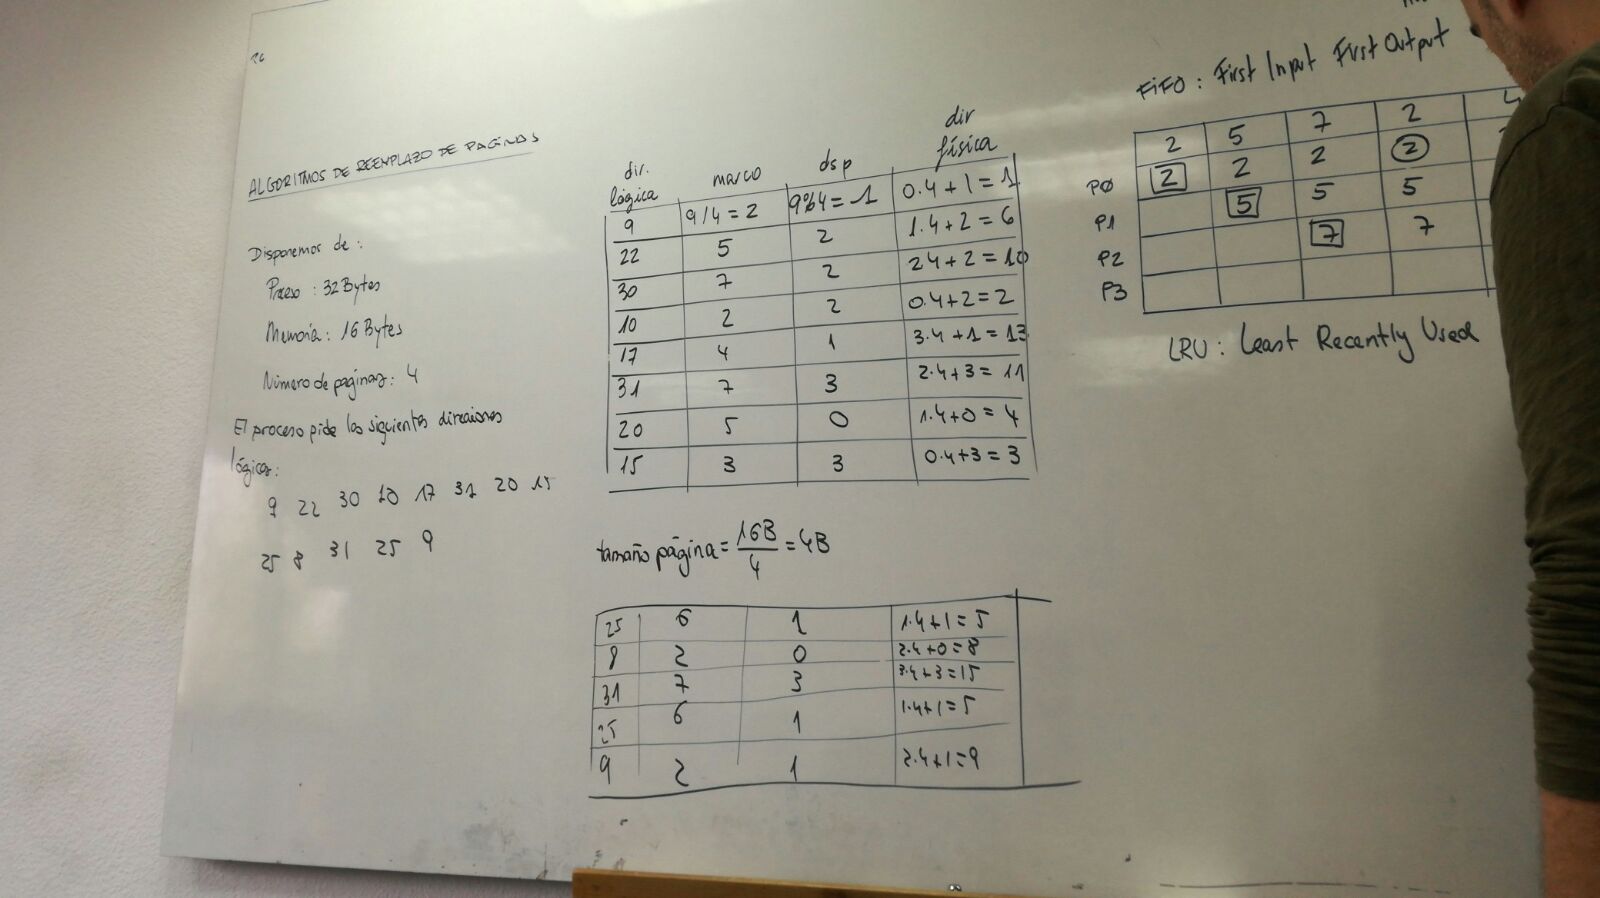 ALGORITMOS DE REEMPLAZO DE PAGINAS
Disponemos de :
Proceso : 32 Bytes
Memoria : 16 Bytes
Número de páginas : 4
El proceso pide las siguientes direcciones
lógicas :
9 22 30 10 17 31 20 15
25 8 31 25 9
dir. lógica marco dsp dir física
9 9/4 = 2 9%4 = 1 0.4+1=1
22 5 2 1.4+2=6
30 7 2 2.4+2=10
10 2 2 0.4+2=2
17 4 1 3.4+1=13
31 7 3 2.4+3=11
20 5 0 1.4+0=4
15 3 3 0.4+3=3
tamaño página = 16B/4 = 4B
25 6 1 1.4+1=5
8 2 0 2.4+0=8
31 7 3 3.4+3=15
25 6 1 1.4+1=5
9 2 1 2.4+1=9
FiFO : First Input First Output
2 5 7 2
P0 2 2 2 2
P1 5 5 5
P2 7 7
P3
LRU : Least Recently Used